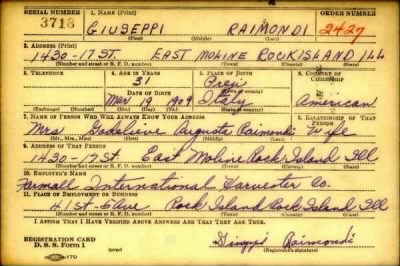 SERIAL NUMBER
1. NAME (Print)
ORDER NUMBER
3716
GIUSEPPI RAIMONDI
2427
(First) (Middle) (Last)
2. ADDRESS (Print)
1430-17 ST. EAST MOLINE ROCK ISLAND ILL
(Number and street or R. F. D. number) (Town) (County) (State)
3. TELEPHONE
4. AGE IN YEARS
5. PLACE OF BIRTH
6. COUNTRY OF CITIZENSHIP
31
DATE OF BIRTH
(Town or county)
Mar 19 1909 Italy American
(Exchange) (Number) (Mo.) (Day) (Yr.) (State or country)
7. NAME OF PERSON WHO WILL ALWAYS KNOW YOUR ADDRESS
8. RELATIONSHIP OF THAT PERSON
Mrs Godelieve Augusta Raimondi Wife
(Mr., Mrs., Miss) (First) (Middle) (Last)
9. ADDRESS OF THAT PERSON
1430-17 St. East Moline Rock Island Ill
(Number and street or R. F. D. number) (Town) (County) (State)
10. EMPLOYER'S NAME
Farmall International Harvester Co.
11. PLACE OF EMPLOYMENT OR BUSINESS
41 St-5 Ave Rock Island Rock Island Ill
(Number and street or R. F. D. number) (Town) (County) (State)
I AFFIRM THAT I HAVE VERIFIED ABOVE ANSWERS AND THAT THEY ARE TRUE.
REGISTRATION CARD
D. S. S. Form 1
Raimondi